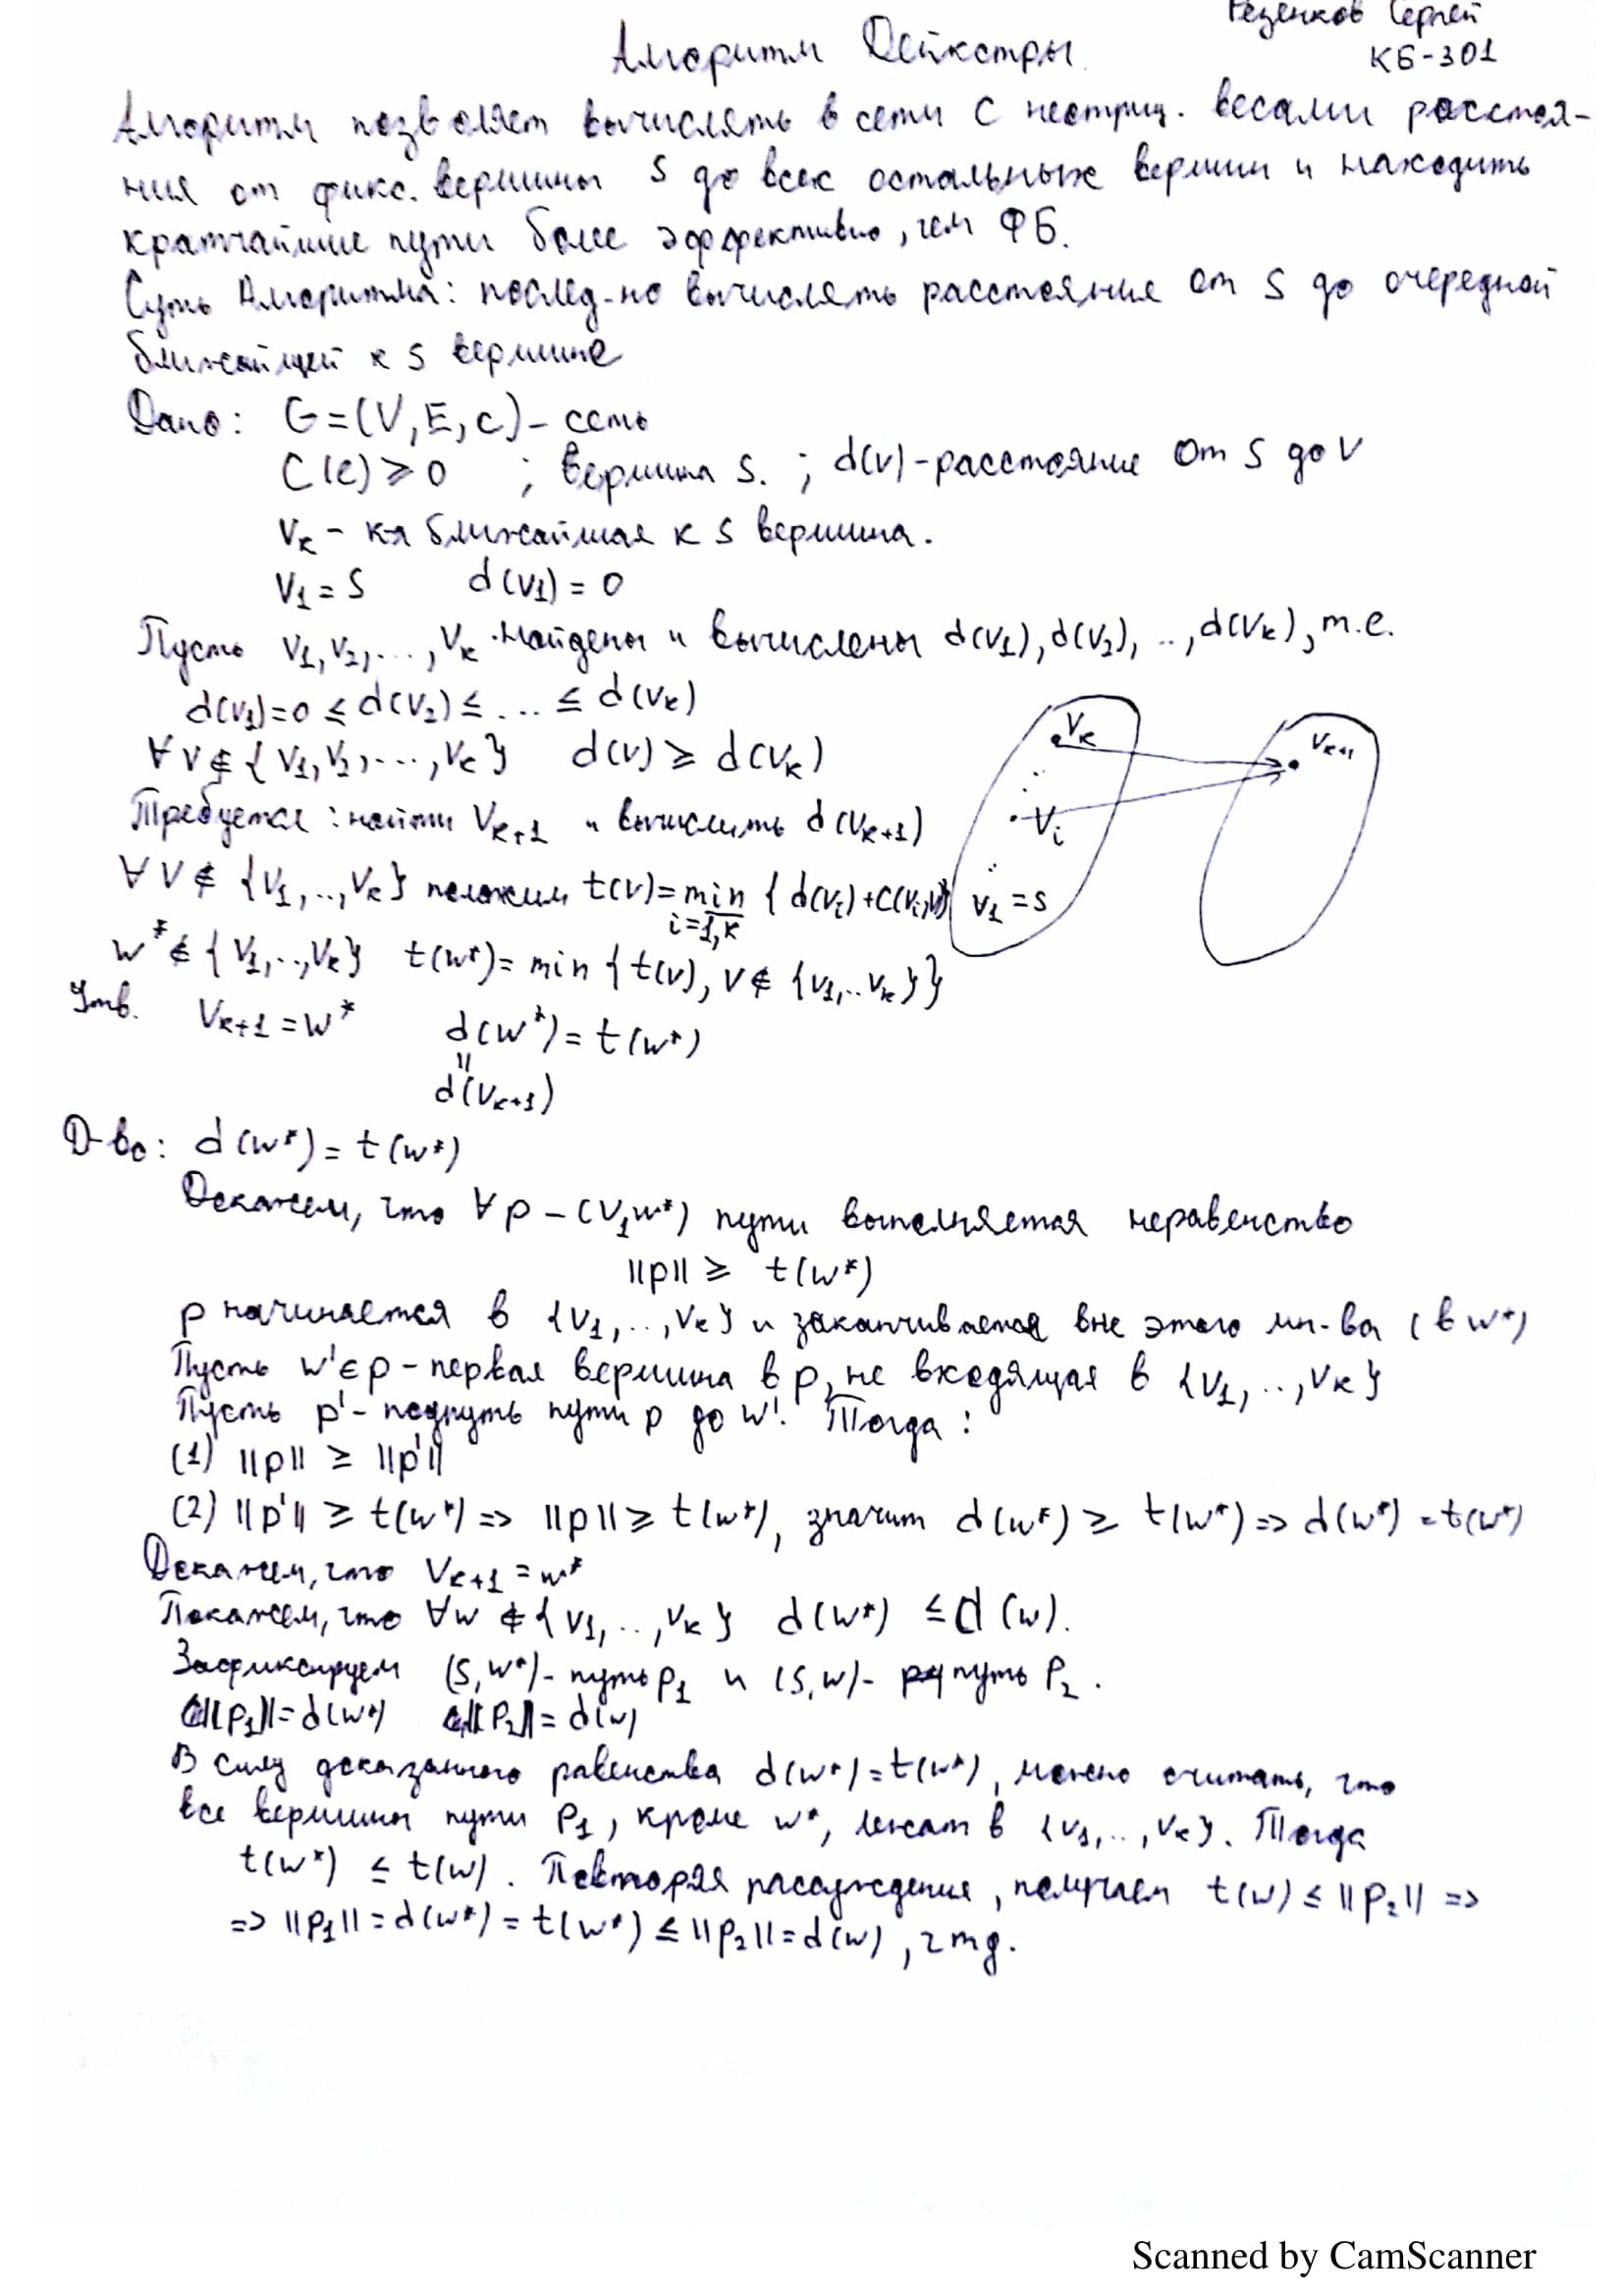 Резенков Сергей
КБ-301
Алгоритм Дейкстры
Алгоритм позволяет вычислять в сети с неотриц. весами расстоя-
ния от фикс. вершины S до всех остальных вершин и находить
кратчайшие пути более эффективно, чем ФБ.
Суть Алгоритма: послед-но вычислять расстояние от S до очередной
ближайшей к S вершине
Дано: G=(V,E,c) - сеть
C(e) ⩾ 0 ; вершина S. ; d(v) - расстояние от S до V
Vₖ - к-я ближайшая к S вершина.
V₁ = S d(v₁) = 0
Пусть V₁,V₂,...,Vₖ найдены и вычислены d(V₁),d(V₂),..,d(Vₖ), т.е.
d(v₁)=0 ≤ d(v₂) ≤ ... ≤ d(vₖ)
∀ v ∉ {V₁,V₂,...,Vₖ} d(v) ⩾ d(Vₖ)
Требуется: найти Vₖ₊₁ и вычислить d(Vₖ₊₁)
∀ V ∉ {V₁,..,Vₖ} положим t(v)= min {d(Vᵢ)+C(Vᵢ,V)}
i=1,k
Vₖ
Vᵢ
V₁ = S
Vₖ₊₁
w* ∉ {V₁,..,Vₖ} t(w*)= min {t(v), V ∉ {V₁,..Vₖ}}
Утв. Vₖ₊₁ = w* d(w*) = t(w*)
||
d(Vₖ₊₁)
Д-во: d(w*) = t(w*)
Докажем, что ∀ p - (V₁w*) пути выполняется неравенство
||p|| ⩾ t(w*)
p начинается в {V₁,..,Vₖ} и заканчивается вне этого мн-ва (в w*)
Пусть w' ∈ p - первая вершина в p, не входящая в {V₁,..,Vₖ}
Пусть p' - подпуть пути p до w'. Тогда:
(1) ||p|| ≥ ||p'||
(2) ||p'|| ≥ t(w*) => ||p|| ≥ t(w*), значит d(w*) ≥ t(w*) => d(w*) = t(w*)
Докажем, что Vₖ₊₁ = w*
Покажем, что ∀w ∉ {V₁,..,Vₖ} d(w*) ≤ d(w).
Зафиксируем (S,w*) - путь p₁ и (S,w) - путь p₂.
||p₁|| = d(w*) ||p₂|| = d(w)
В силу доказанного равенства d(w*) = t(w*), можно считать, что
все вершины пути p₁, кроме w*, лежат в {V₁,..,Vₖ}. Тогда
t(w*) ≤ t(w). Повторяя рассуждения, получаем t(w) ≤ ||p₂|| =>
=> ||p₁|| = d(w*) = t(w*) ≤ ||p₂|| = d(w), чтд.
Scanned by CamScanner